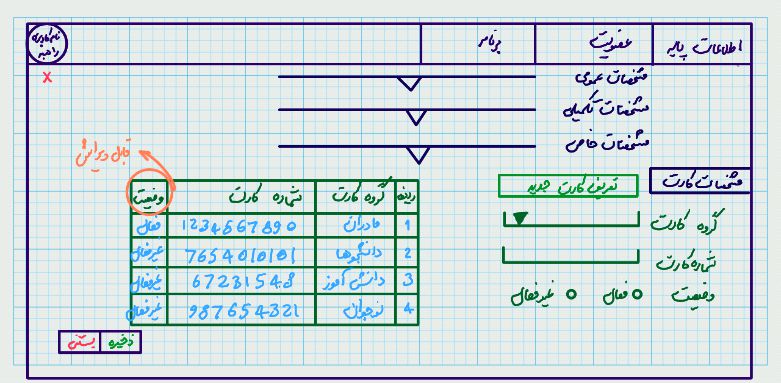 اطلاعات پایه
عضویت
برنامه
نام کاربری
راهبر
x
مشخصات عمومی
مشخصات تکمیلی
مشخصات خاص
قابل ویرایش
مشخصات کارت
تعریف کارت جدید
گروه کارت
شماره کارت
وضعیت فعال غیرفعال
ردیف گروه کارت شماره کارت وضعیت
1 مادران 1234567890 فعال
2 دانشجوها 7654010101 غیرفعال
3 دانش آموز 67231548 غیرفعال
4 نوجوان 987654321 غیرفعال
ذخیره بستن